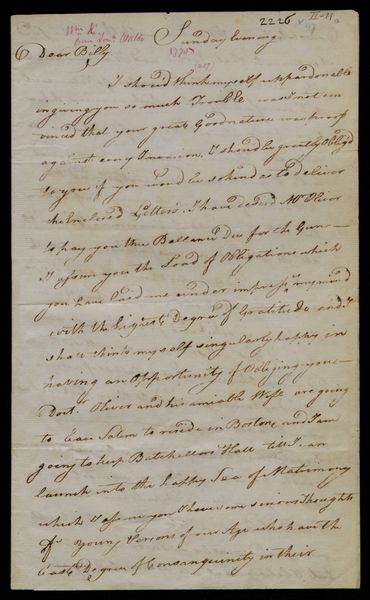 2226
II-11
Sunday Evening
1775
(237)
Dear Billy
I should think myself unpardonable
in giving you so much Trouble was I not con
vinced that your great Good nature was proof
against every Invasion. I should be greatly Obligd
to you if you would be so kind as to deliver
the Enclosed Letters. I have desired Mr Oliver
to pay you the Ballance Due for the Gun —
I assure you the Load of Obligations which
you have laid me under impress my mind
with the highest Degree of Gratitude and I
shall think myself singularly happy in
having an Opportunity of Obliging you —
Doct. Oliver and his amiable Wife are going
to leave Salem to reside in Boston, and I am
going to keep Batchellors Hall till I can
launch into the happy Sea of Matrimony
which I assure you I have some serious Thoughts
of. Young Persons of our Age who have the
least Degree of Consanguinity in their